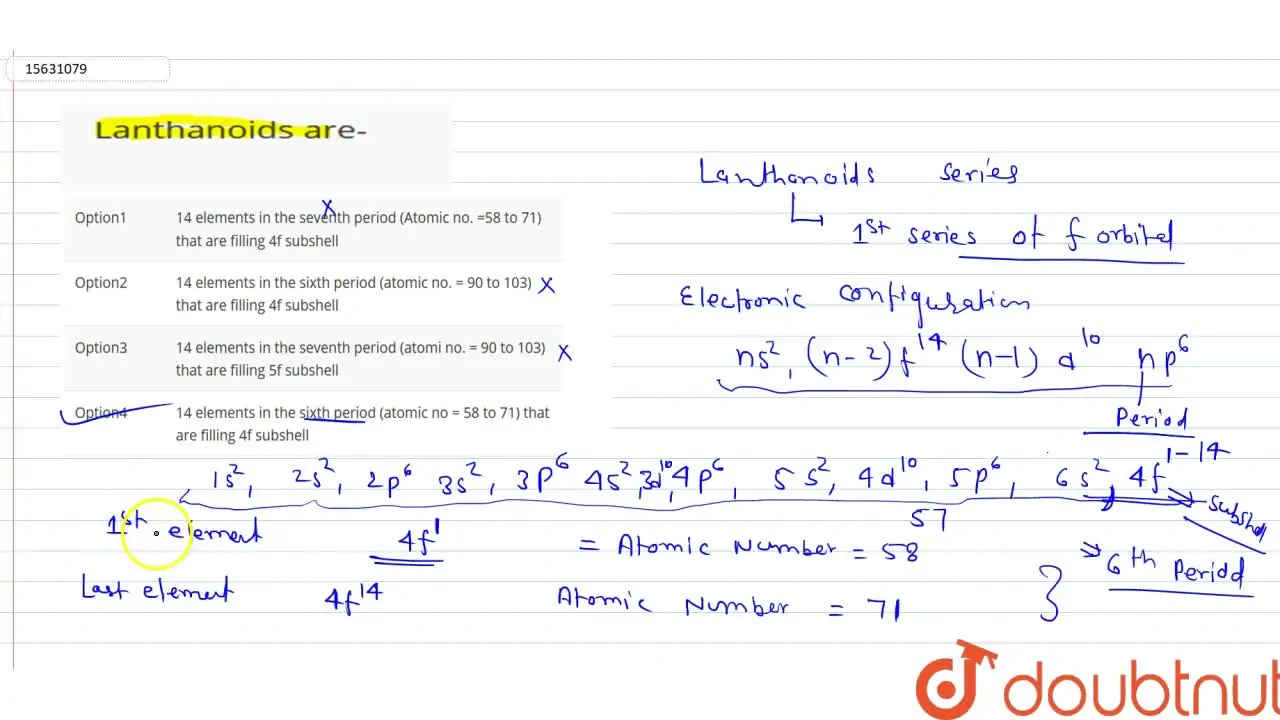 15631079
Lanthanoids are-
Option1 14 elements in the seventh period (Atomic no. =58 to 71)
that are filling 4f subshell
x
Option2 14 elements in the sixth period (atomic no. = 90 to 103) x
that are filling 4f subshell
Option3 14 elements in the seventh period (atomi no. = 90 to 103) x
that are filling 5f subshell
Option4 14 elements in the sixth period (atomic no = 58 to 71) that
are filling 4f subshell
Lanthanoids series
1st series of f orbital
Electronic configuration
ns², (n-2)f¹⁴ (n-1) d¹⁰ np⁶
Period
1s², 2s², 2p⁶ 3s², 3p⁶ 4s², 3d¹⁰, 4p⁶, 5s², 4d¹⁰, 5p⁶, 6s², 4f¹⁻¹⁴
subshell
57
1st element 4f¹ = Atomic Number = 58
6th Period
Last element 4f¹⁴ Atomic Number = 71 }
doubtnut